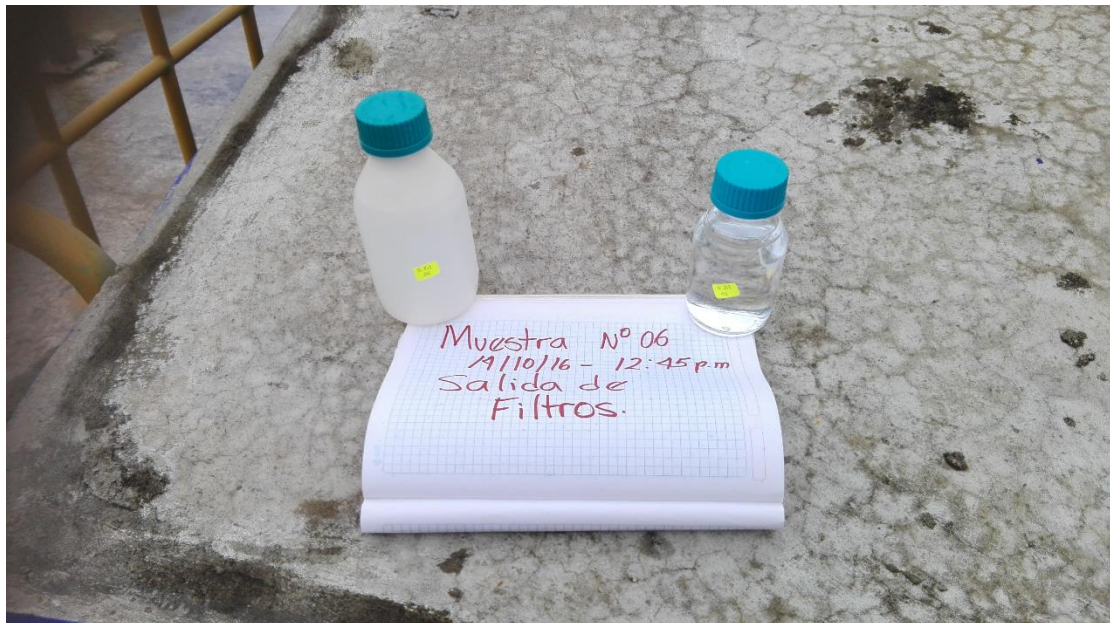 Muestra Nº 06
19/10/16 - 12:45 p.m
Salida de
Filtros.